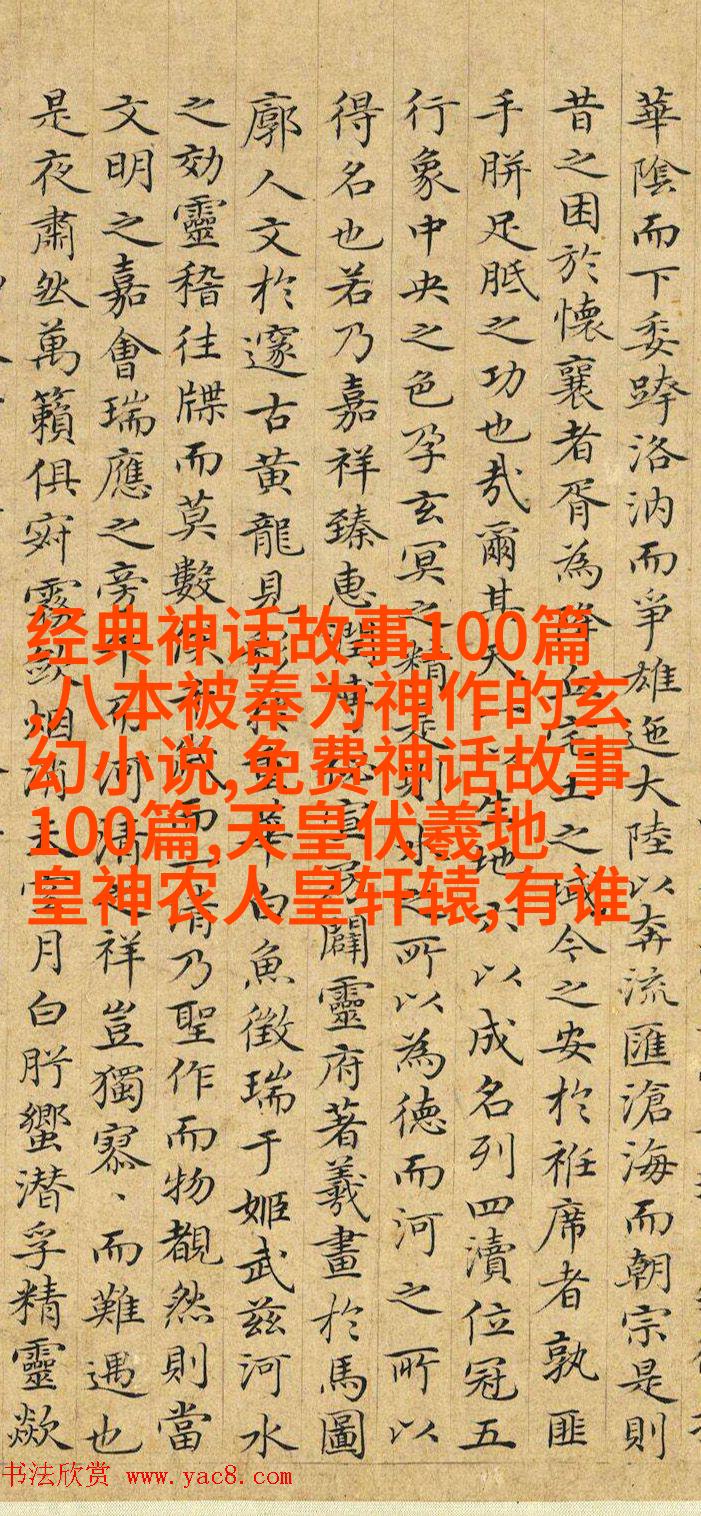 華陰而下委跨洛汭而爭雄迤大陸以奔流匯滄海而朝宗是則
昔之困於懷襄者胥為降丘宅土之域今之安於袵席者孰匪
手胼足胝之功也哉爾其天一以生地六以成名列四瀆位冠五
行象中央之色孕玄冥之精是則水之所以為德而河之所以
得名也若乃嘉祥臻惠潤宣闢靈府著羲畫於馬圖
廓人文於邃古黃龍見白魚徵瑞于姬武茲河水
之効靈稽往牒而莫數而一清乃聖作而物覩然則當
文明之嘉會瑞應之旁午有河清之祥豈獨寡、而難遇也
是夜肅然萬籟俱寂霧斂烟消天空月白肸蠁潜孚精靈歘
经典神话故事100篇
,八本被奉为神作的玄
幻小说,免费神话故事
100篇,天皇伏羲地
皇神农人皇轩辕,有谁
书法欣赏 www.yac8.com